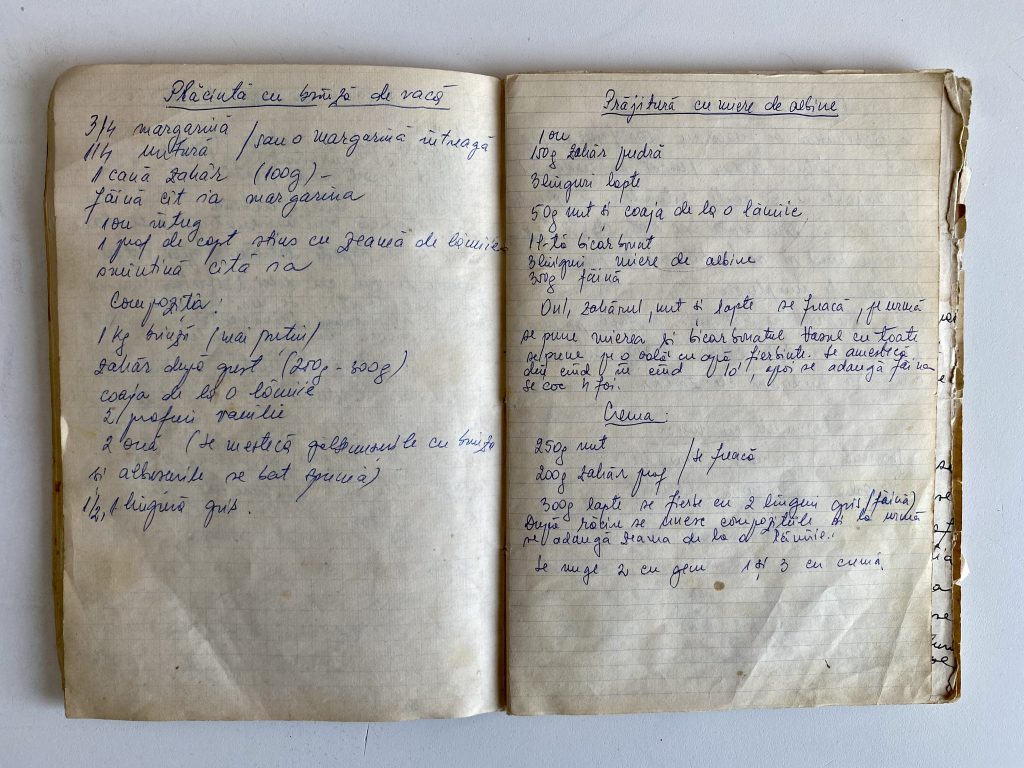 Plăcintă cu brînză de vacă
3/4 margarină
1/4 untură / sau o margarină întreagă
1 cană zahăr (100g) -
făină cît ia margarina
1 ou întreg
1 praf de copt stins cu zeamă de lămîie
smîntînă cîtă ia
Compoziția:
1 kg brînză (mai puțin)
zahăr după gust (250g - 300g)
coaja de la o lămîie
2 prafuri vanilie
2 ouă (se mestecă gălbenușurile cu brînza
și albușurile se bat spumă)
1/2, 1 lingură griș.
Prăjitură cu miere de albine
1 ou
150g zahăr pudră
3 linguri lapte
50g unt și coaja de la o lămîie
1 l-ță bicarbonat
3 linguri miere de albine
300g făină
Oul, zahărul, unt și lapte se freacă, pe urmă
se pune mierea și bicarbonatul Vasul cu toate
se pune pe o oală cu apă fierbinte. Se amestecă
din cînd în cînd 10', apoi se adaugă făina
Se coc 4 foi.
Crema:
250g unt
200g zahăr praf / se freacă
300g lapte se fierbe cu 2 linguri griș (făină)
După răcire se unesc compozițiile și la urmă
se adaugă zeama de la o lămîie.
Se unge 2 cu gem 1 și 3 cu cremă